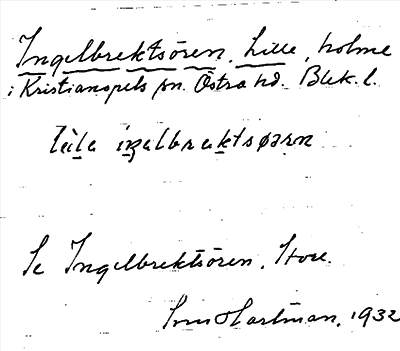 Ingelbrektsören, Lille, holme
i Kristianopels sn. Östra hd. Blek. l.
lìla iŋəlbrɛktsøərn
Se Ingelbrektsören, Store.
Hartman, 1932